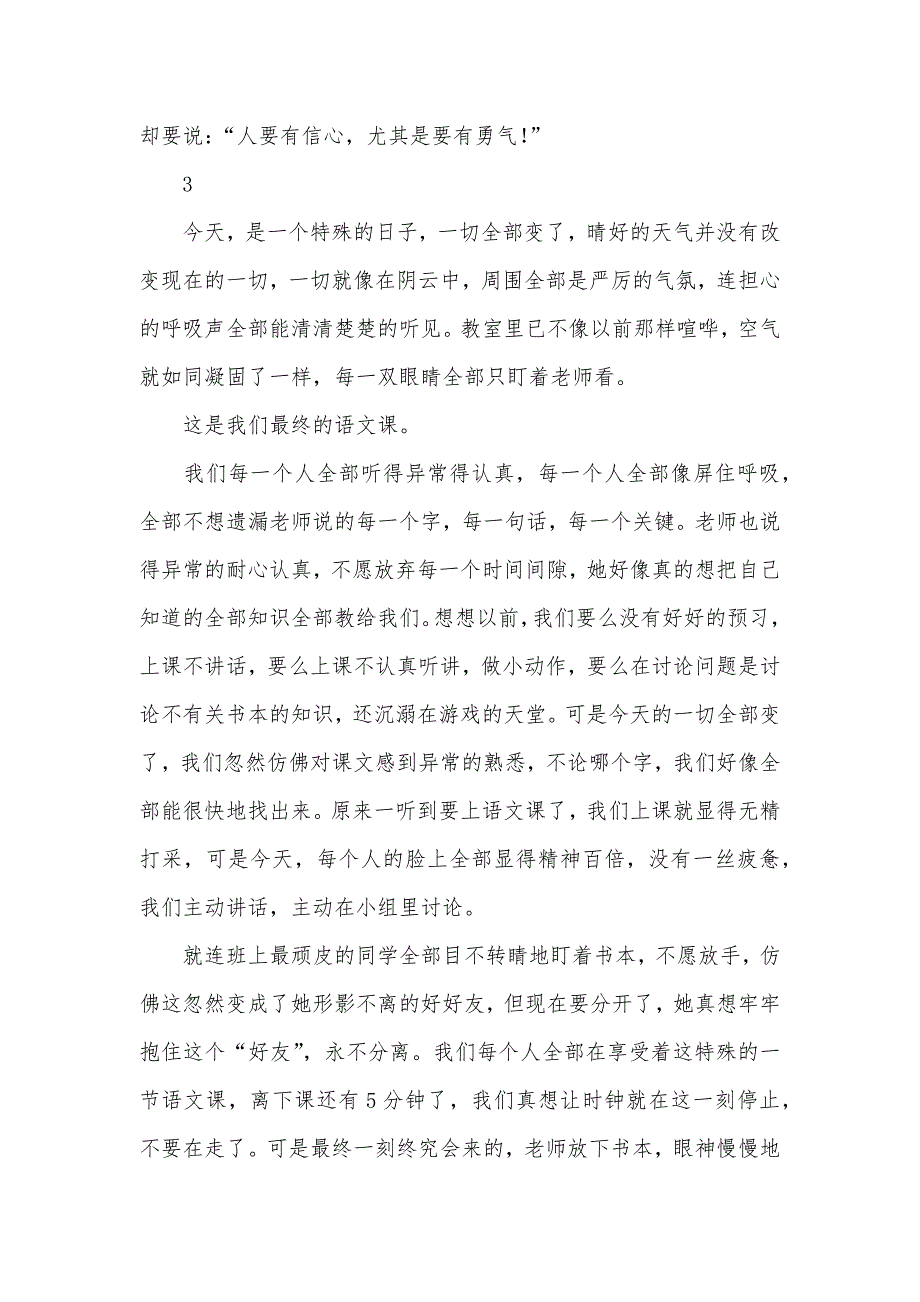 却要说：“人要有信心，尤其是要有勇气！”
3
今天，是一个特殊的日子，一切全部变了，晴好的天气并没有改
变现在的一切，一切就像在阴云中，周围全部是严厉的气氛，连担心
的呼吸声全部能清清楚楚的听见。教室里已不像以前那样喧哗，空气
就如同凝固了一样，每一双眼睛全部只盯着老师看。
这是我们最终的语文课。
我们每一个人全部听得异常得认真，每一个人全部像屏住呼吸，
全部不想遗漏老师说的每一个字，每一句话，每一个关键。老师也说
得异常的耐心认真，不愿放弃每一个时间间隙，她好像真的想把自己
知道的全部知识全部教给我们。想想以前，我们要么没有好好的预习，
上课不讲话，要么上课不认真听讲，做小动作，要么在讨论问题是讨
论不有关书本的知识，还沉溺在游戏的天堂。可是今天的一切全部变
了，我们忽然仿佛对课文感到异常的熟悉，不论哪个字，我们好像全
部能很快地找出来。原来一听到要上语文课了，我们上课就显得无精
打采，可是今天，每个人的脸上全部显得精神百倍，没有一丝疲惫，
我们主动讲话，主动在小组里讨论。
就连班上最顽皮的同学全部目不转睛地盯着书本，不愿放手，仿
佛这忽然变成了她形影不离的好好友，但现在要分开了，她真想牢牢
抱住这个“好友”，永不分离。我们每个人全部在享受着这特殊的一
节语文课，离下课还有5分钟了，我们真想让时钟就在这一刻停止，
不要在走了。可是最终一刻终究会来的，老师放下书本，眼神慢慢地